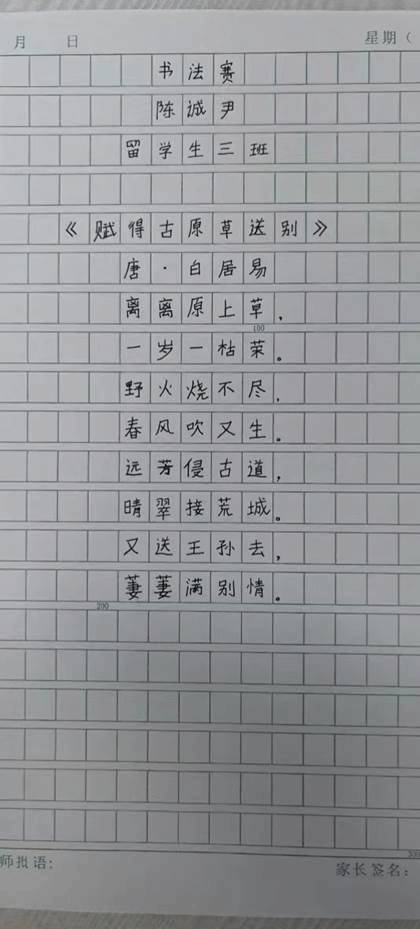 月 日 星期（
书法赛
陈诚尹
留学生三班
《赋得古原草送别》
唐·白居易
离离原上草，
100
一岁一枯荣。
野火烧不尽，
春风吹又生。
远芳侵古道，
晴翠接荒城。
又送王孙去，
萋萋满别情。
200
300
师批语： 家长签名：